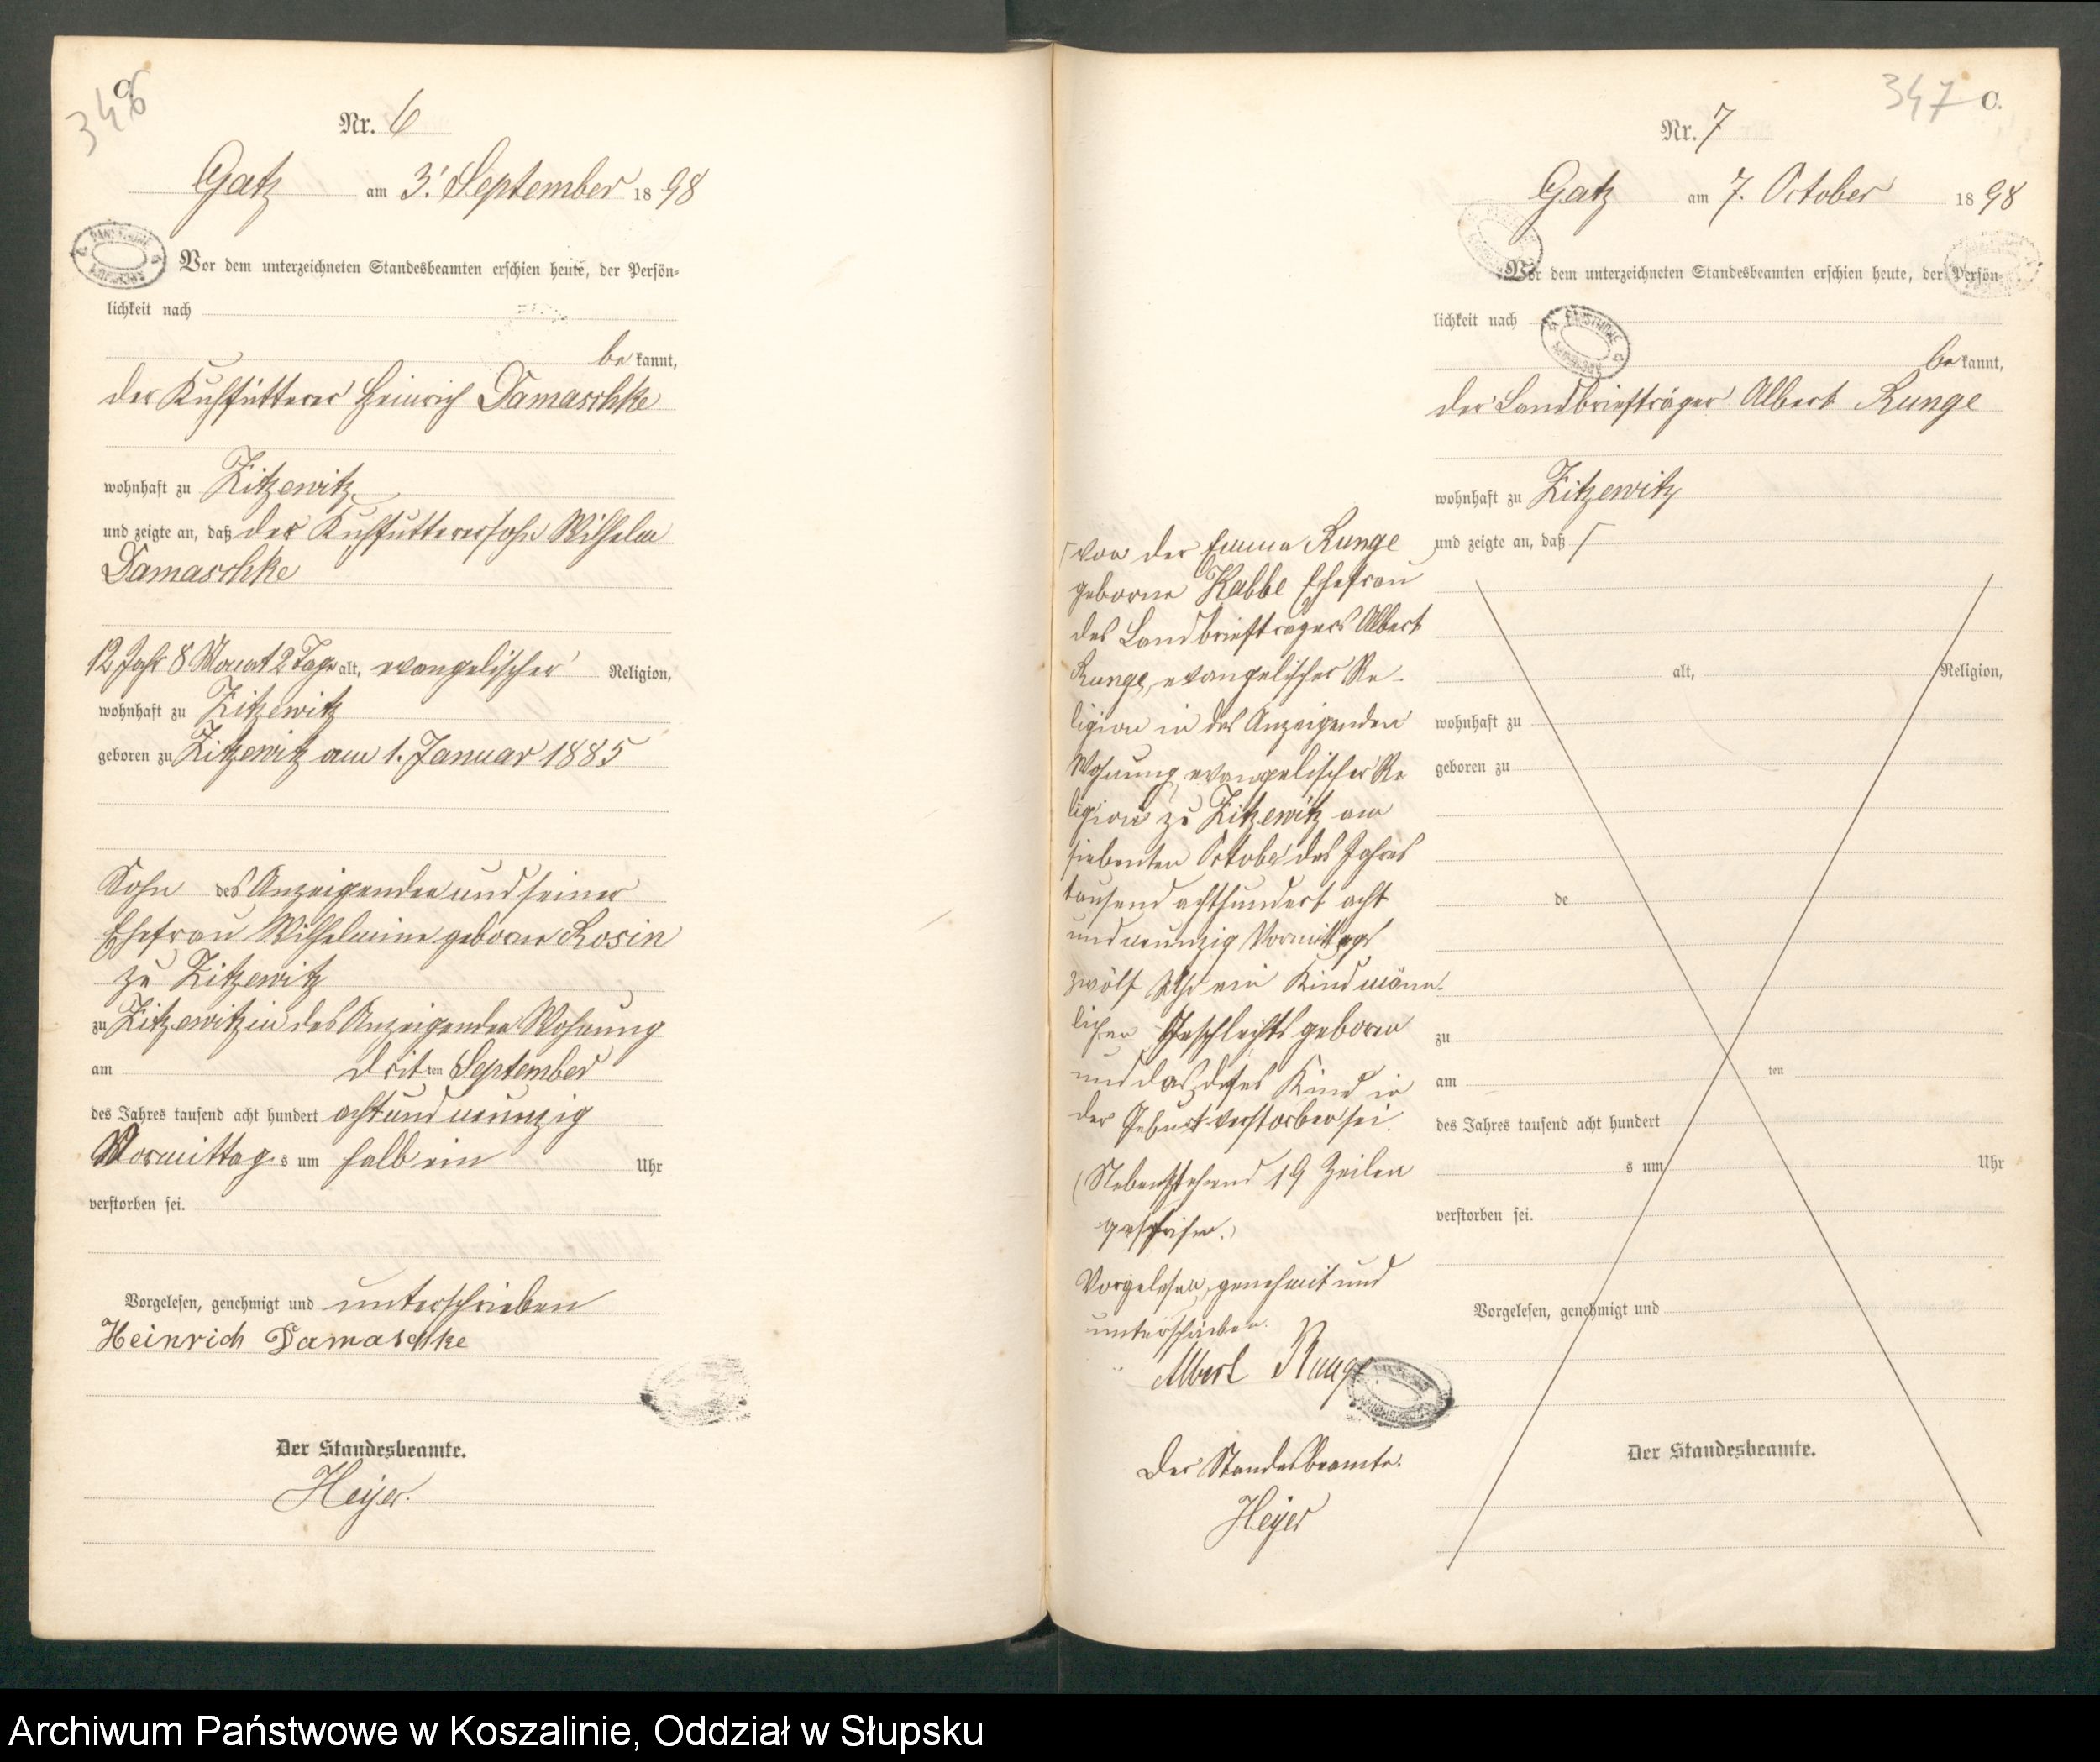 346
C.
Nr. 6
Gatz am 3. September 1898
Vor dem unterzeichneten Standesbeamten erschien heute, der Persön=
lichkeit nach
bekannt,
der Kuhfütterer Heinrich Damaschke
wohnhaft zu Zitzewitz,
und zeigte an, daß der Kuhfutterersohn Wilhelm
Damaschke
12 Jahr 8 Monat 2 Tage alt, evangelischer Religion,
wohnhaft zu Zitzewitz
geboren zu Zitzewitz am 1. Januar 1885
Sohn des Anzeigenden und seiner
Ehefrau Wilhelmine geborne Rosin
zu Zitzewitz
zu Zitzewitz in des Anzeigenden Wohnung
am dritten September
des Jahres tausend acht hundert acht und neunzig
Vormittags um halb ein Uhr
verstorben sei.
Vorgelesen, genehmigt und unterschrieben
Heinrich Damaschke
Der Standesbeamte.
Heyer.
347 C.
Nr. 7
Gatz am 7. October 1898
Vor dem unterzeichneten Standesbeamten erschien heute, der Persön=
lichkeit nach
bekannt,
der Landbriefträger Albert Runge
wohnhaft zu Zitzewitz
und zeigte an, daß
von der Emma Runge
geborne Kabbe Ehefrau
des Landbrieftragers Albert
Runge, evangelischer Re-
ligion in des Anzeigenden
Wohnung evangelischer Re
ligion zu Zitzewitz am
siebenten October des Jahres
tausend achthundert acht
und neunzig Vormittags
zwölf Uhr ein Kind männ-
lichen Geschlechts geboren
und das dises Kind in
der Geburt verstorben sei.
(Nebenstehend 19 Zeilen
gestrichen.)
Vorgelesen, genehmigt und
unterschrieben.
Albert Runge
Der Standesbeamte.
Heyer
alt, Religion,
wohnhaft zu
geboren zu
de
zu
am ten
des Jahres tausend acht hundert
s um Uhr
verstorben sei.
Vorgelesen, genehmigt und
Der Standesbeamte.
Archiwum Państwowe w Koszalinie, Oddział w Słupsku